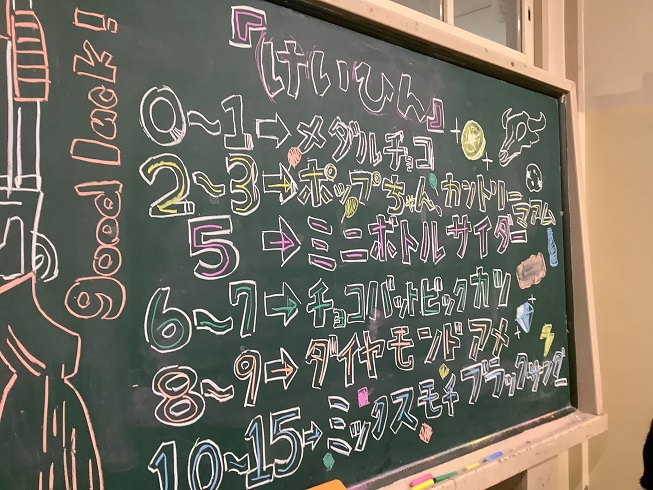 good lack!
『けいひん』
0~1⇨メダルチョコ
2~3⇨ポップちゃん、カントリーマアム
5⇨ミニボトルサイダー
6~7⇨チョコバットビックカツ
8~9⇨ダイヤモンドアメ
10~15⇨ミックスモチブラックサンダー